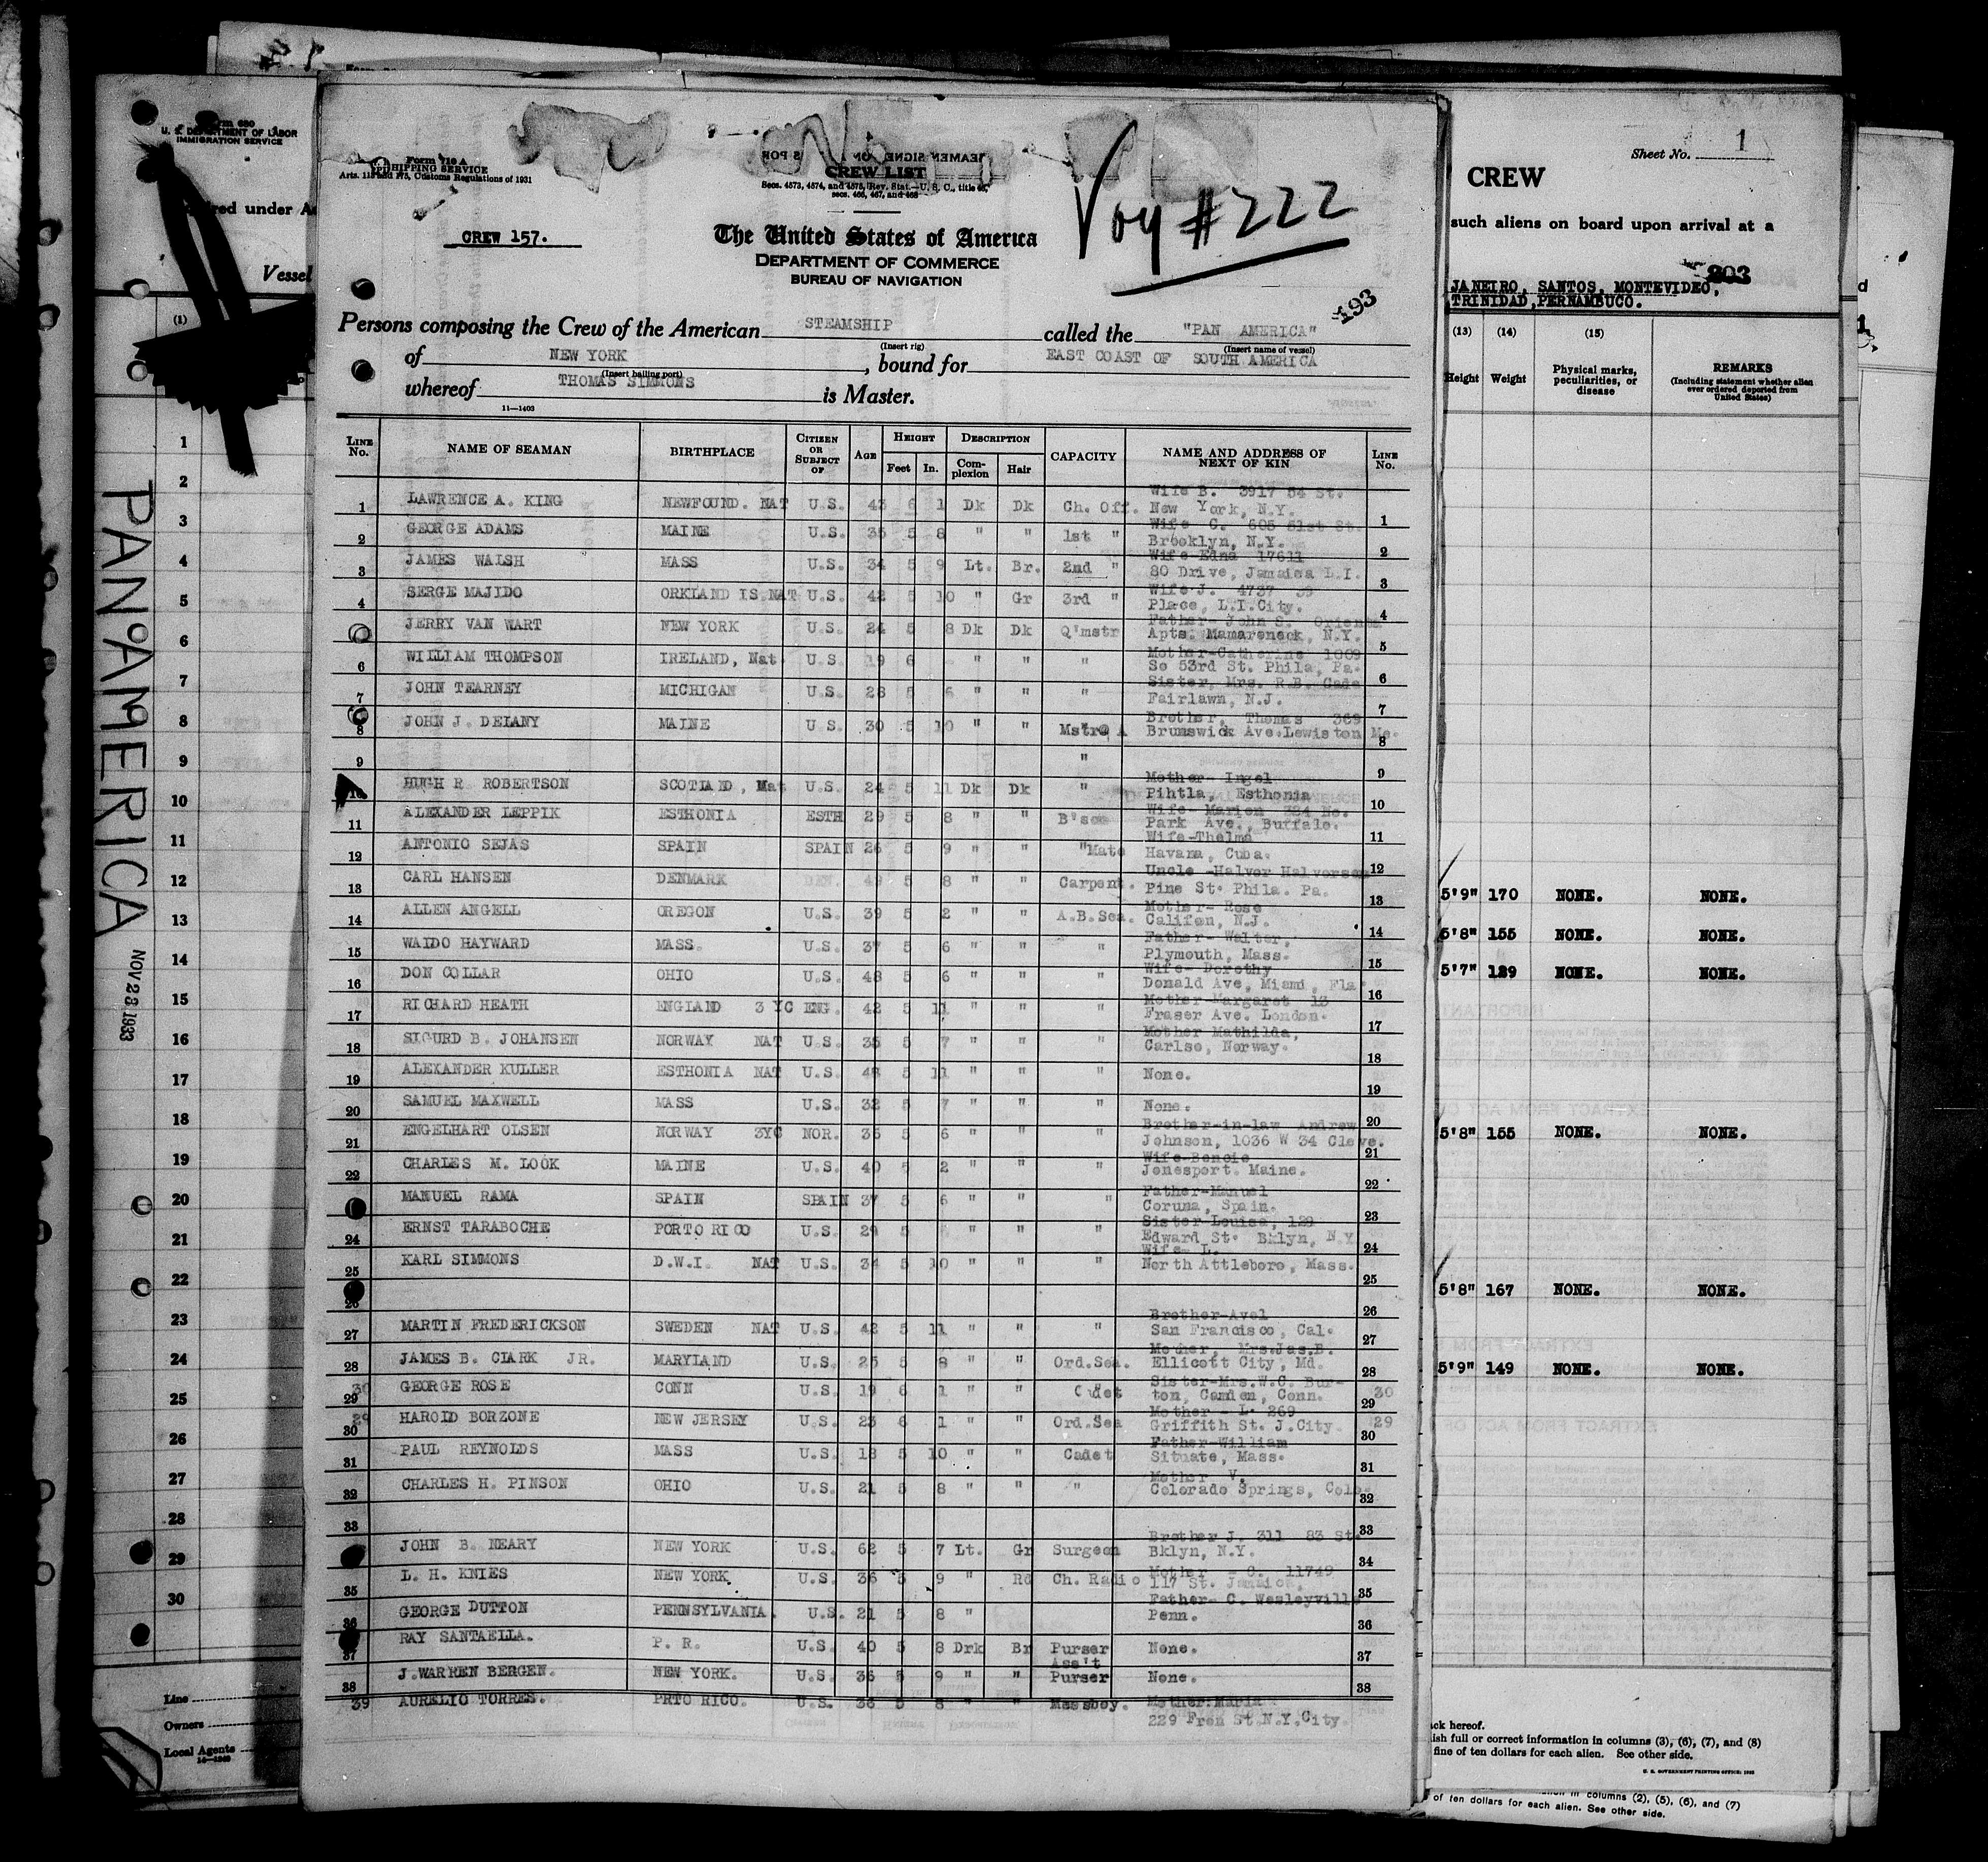 Form 710 A
SHIPPING SERVICE
Customs Regulations of 1931
CREW LIST
Secs. 4573, 4574, and 4575, Rev. Stat.—U. S. C., title 46,
secs. 466, 467, and 468
Voy #222
CREW 157.
The United States of America
DEPARTMENT OF COMMERCE
BUREAU OF NAVIGATION
193
Persons composing the Crew of the American STEAMSHIP called the "PAN AMERICA"
(Insert rig) (Insert name of vessel)
of NEW YORK, bound for EAST COAST OF SOUTH AMERICA
(Insert hailing port)
whereof THOMAS SIMMONS is Master.
11—1403
LINE No. NAME OF SEAMAN BIRTHPLACE CITIZEN OR SUBJECT OF AGE HEIGHT Feet In. DESCRIPTION Complexion Hair CAPACITY NAME AND ADDRESS OF NEXT OF KIN LINE No.
1 LAWRENCE A. KING NEWFOUND. NAT U.S. 43 6 1 Dk Dk Ch. Off. Wife B. 3917 54 St. New York, N.Y. 1
2 GEORGE ADAMS MAINE U.S. 35 5 8 " " 1st " Wife C. 605 51st St. Brooklyn, N.Y. 2
3 JAMES WALSH MASS U.S. 34 5 9 Lt. Br. 2nd " Wife Edna 17611 80 Drive, Jamaica L.I. 3
4 SERGE MAJIDO ORKLAND IS.NAT U.S. 42 5 10 " Gr 3rd " Wife J. 4737 39 Place, L.I.City. 4
JERRY VAN WART NEW YORK U.S. 24 5 8 Dk Dk Q'mstr Father- John S. Orienta Apts. Mamaroneck, N.Y. 5
6 WILLIAM THOMPSON IRELAND, Nat. U.S. 19 6 " " " Mother-Catherine 1009 So 53rd St. Phila, Pa. 6
7 JOHN TEARNEY MICHIGAN U.S. 28 5 6 " " " Sister, Mrs. R.B. Cade Fairlawn, N.J. 7
8 JOHN J. DELANY MAINE U.S. 30 5 10 " " Mstr@ A Brother, Thomas 369 Brunswick Ave.Lewiston Me. 8
9 " 9
10 HUGH R ROBERTSON SCOTLAND, Nat U.S. 24 5 11 Dk Dk " Mother- Ingel Pihtla, Esthonia 10
11 ALEXANDER LEPPIK ESTHONIA ESTH 29 5 8 " " B's'n Wife- Marion 324 No. Park Ave., Buffalo. 11
12 ANTONIO SEJAS SPAIN SPAIN 26 5 9 " " "Mate Wife-Thelma Havana, Cuba. 12
13 CARL HANSEN DENMARK DEN. 49 5 8 " " Carpent. Uncle -Halvor Halvorsen Pine St. Phila. Pa. 13
14 ALLEN ANGELL OREGON U.S. 39 5 2 " " A.B.Sea. Mother- Rose Califon, N.J. 14
15 WALDO HAYWARD MASS. U.S. 37 5 6 " " " Father- Walter, Plymouth, Mass. 15
16 DON COLLAR OHIO U.S. 48 5 6 " " " Wife- Dorothy Donald Ave, Miami, Fla 16
17 RICHARD HEATH ENGLAND 3 YC ENG. 42 5 11 " " " Mother-Margaret 13 Fraser Ave. London. 17
18 SIGURD B. JOHANSEN NORWAY NAT U.S. 35 5 7 " " " Mother Mathilda, Carlso, Norway. 18
19 ALEXANDER KULLER ESTHONIA NAT U.S. 48 5 11 " " " None. 19
20 SAMUEL MAXWELL MASS U.S. 32 5 7 " " " None. 20
21 ENGELHART OLSEN NORWAY 3YC NOR. 35 5 6 " " " Brother-in-law Andrew Johnson, 1036 W 34 Cleve. 21
22 CHARLES M. LOOK MAINE U.S. 40 5 2 " " " Wife-Bencie Jonesport. Maine. 22
MANUEL RAMA SPAIN SPAIN 37 5 6 " " " Father-Manuel Coruna, Spain. 23
24 ERNST TARABOCHE PORTO RICO U.S. 29 5 " " " Sister Louisa, 129 Edward St. Bklyn, N.Y. 24
25 KARL SIMMONS D.W.I. NAT U.S. 34 5 10 " " " Wife- L. North Attleboro, Mass. 25
26 26
27 MARTIN FREDERICKSON SWEDEN NAT U.S. 42 5 11 " " " Brother-Axel San Francisco, Cal. 27
28 JAMES B. CLARK JR. MARYLAND U.S. 25 5 8 " " Ord.Sea. Mother, Mrs.Jas.B. Ellicott City, Md. 28
29 30 GEORGE ROSE CONN U.S. 19 6 1 " " Cadet Sister-Mrs.W.C. Burton, Camden, Conn. 30 29
30 29 HAROLD BORZONE NEW JERSEY U.S. 23 6 1 " " Ord.Sea Mother - L. 269 Griffith St. J.City. 29 30
31 PAUL REYNOLDS MASS U.S. 18 5 10 " " Cadet Father-William Situate, Mass. 31
32 CHARLES H. PINSON OHIO U.S. 21 5 8 " " " Mother V. Colorado Springs, Colo. 32
33 33
JOHN B. NEARY NEW YORK U.S. 62 5 7 Lt. Gr Surgeon Brother J. 311 83 St. Bklyn, N.Y. 34
35 L. H. KNIES NEW YORK U.S. 36 5 9 " Rd Ch. Radio Mother - C. 11749 117 St. Jamaica, 35
36 GEORGE DUTTON PENNSYLVANIA. U.S. 21 5 8 " Father- C. Wesleyville Penn. 36
37 RAY SANTAELLA. P. R. U.S. 40 5 8 Drk Br Purser None. 37
38 J.WARREN BERGEN. NEW YORK. U.S. 36 5 9 " " Ass't Purser None. 38
39 AURELIO TORRES. PRTO RICO. U.S. 36 5 8 " " Messboy. Mother:Maria 229 Fron St.N.Y.City.
U. S. DEPARTMENT OF LABOR
IMMIGRATION SERVICE
Vessel
(1)
PAN AMERICA
NOV 28 1933
1
2
3
4
5
6
7
8
9
10
11
12
13
14
15
16
17
18
19
20
21
22
23
24
25
26
27
28
29
30
Line
Owners
Local Agents
Sheet No. 1
CREW
such aliens on board upon arrival at a
203
JANEIRO, SANTOS, MONTEVIDEO,
TRINIDAD,PERNAMBUCO.
(13) (14) (15)
Height Weight Physical marks, peculiarities, or disease REMARKS
(Including statement whether alien ever ordered deported from United States)
5'9" 170 NONE. NONE.
5'8" 155 NONE. NONE.
5'7" 129 NONE. NONE.
5'8" 155 NONE. NONE.
5'8" 167 NONE. NONE.
5'9" 149 NONE. NONE.
ack hereof.
ish full or correct information in columns (3), (6), (7), and (8)
fine of ten dollars for each alien. See other side.
U. S. GOVERNMENT PRINTING OFFICE: 1932
in columns (2), (5), (6), and (7)
of ten dollars for each alien. See other side.